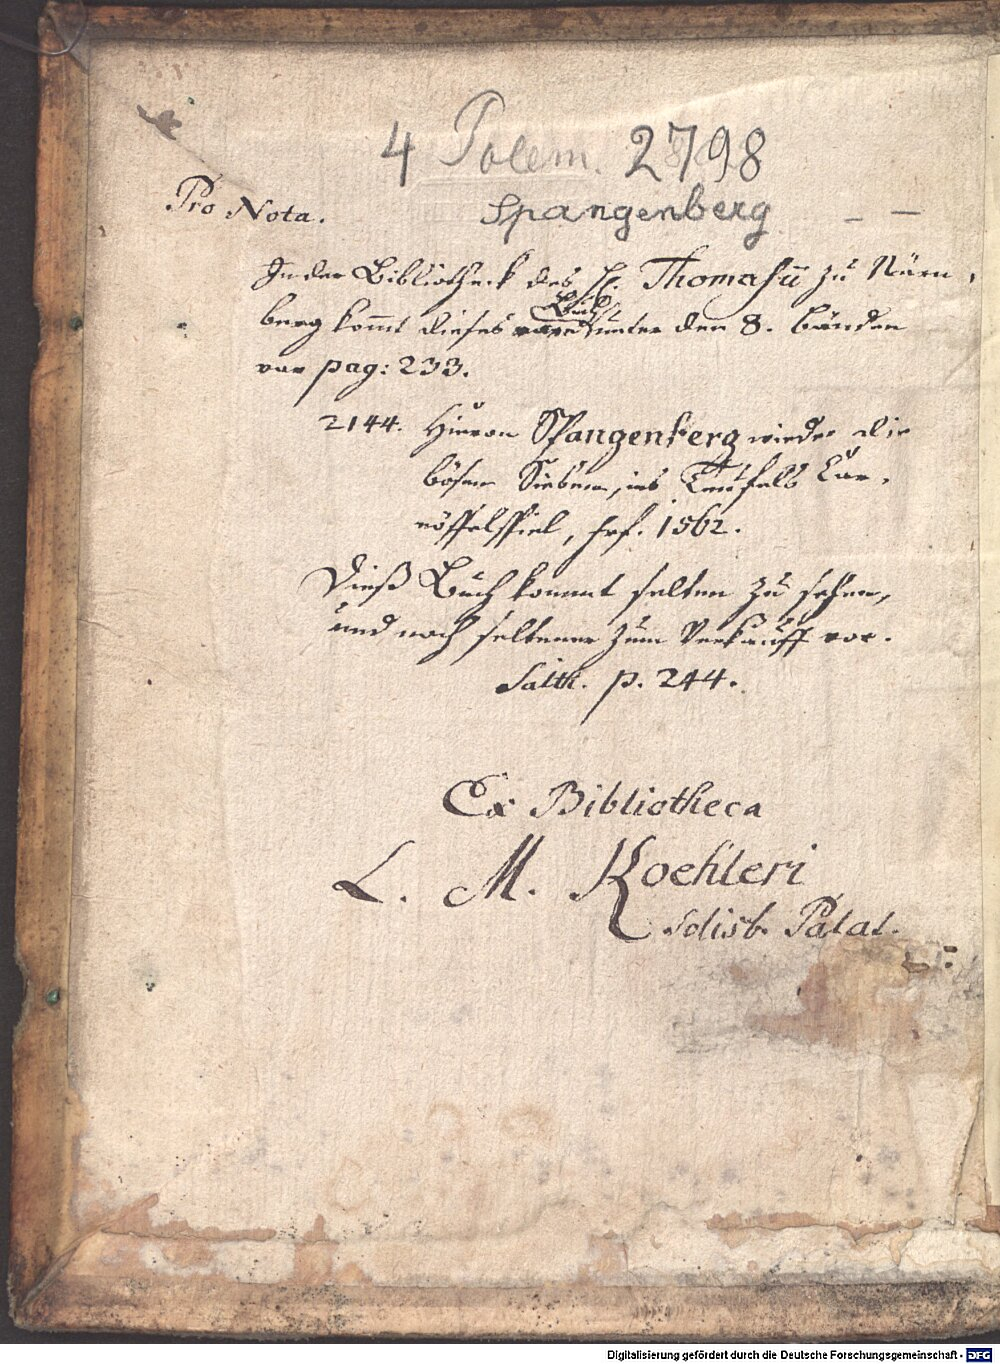 4 Polem. 2798
Spangenberg
Pro Nota.
In der Bibliotheck des H. Thomasii zu Nürn,
berg kommt dieses rare Buch unter den 8. bänden
vor pag: 233.
2144. Hieron Spangenberg wieder die
bösen Sieben, ins Teufels Car,
nöffelspiel, 1562.
Dieß Buch kommt selten zu sehen,
und noch seltener zum Verkauff vor.
Salth. p. 244.
Ex Bibliotheca
L. M. Koehleri
Solisb. Palat.
Digitalisierung gefördert durch die Deutsche Forschungsgemeinschaft - DFG